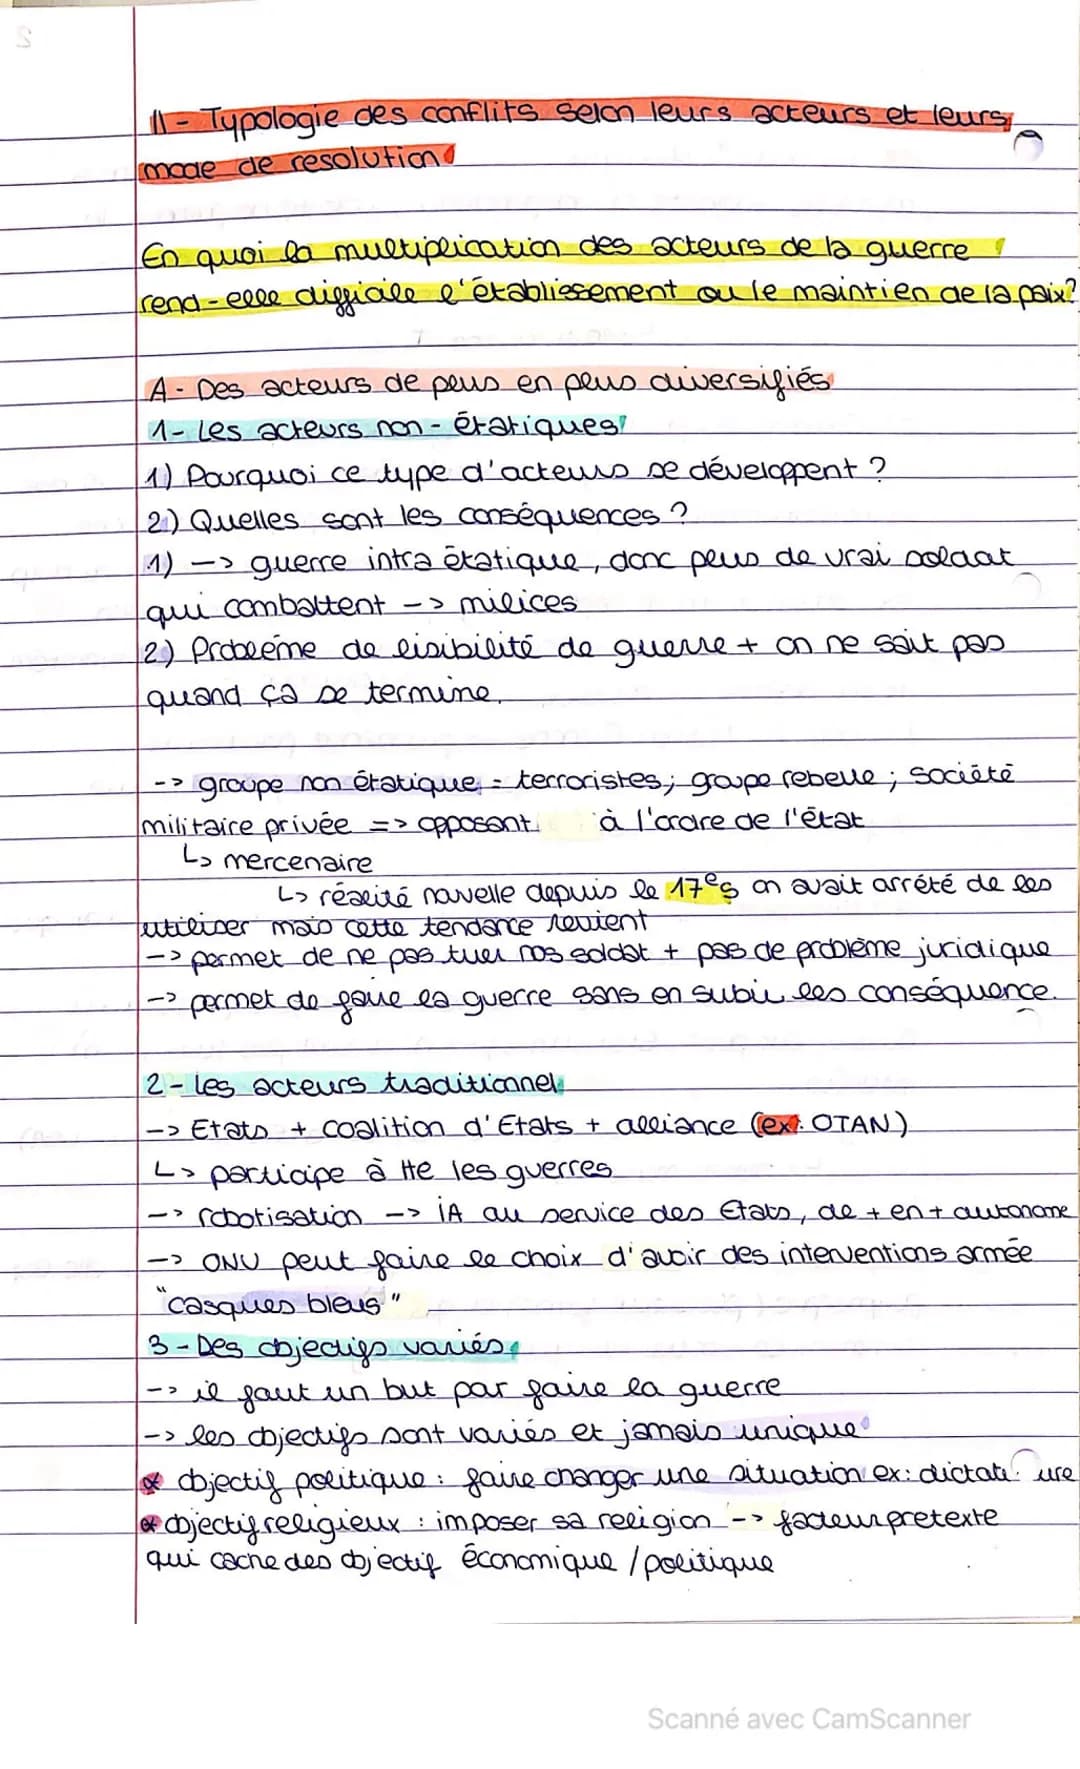 II - Typologie des conflits selon leurs acteurs et leurs
mode de resolution
En quoi la multiplication des acteurs de la guerre
rend-elle difficile l'établissement ou le maintien de la paix?
A - Des acteurs de plus en plus diversifiés
1 - Les acteurs non-étatiques
1) Pourquoi ce type d'acteurs se développent ?
2) Quelles sont les conséquences ?
1) -> guerre intra étatique, donc plus de vrai soldat
qui combattent -> milices
2) Problème de lisibilité de guerre + on ne sait pas
quand ça se termine.
-> groupe non étatique = terroristes; groupe rebelle; société
militaire privée => opposant à l'ordre de l'état
↳ mercenaire
↳ réalité nouvelle depuis le 17es on avait arrété de les
utiliser mais cette tendance revient
-> permet de ne pas tuer nos soldat + pas de problème juridique
-> permet de faire la guerre sans en subir les conséquence.
2 - Les acteurs traditionnel
-> Etats + coalition d'Etats + alliance (ex: OTAN)
↳ participe à tte les guerres
-> robotisation -> iA au service des Etats, de + en + autonome
-> ONU peut faire le choix d'avoir des interventions armée
"casques bleus"
3 - Des objectifs variés
-> il faut un but par faire la guerre
-> les objectifs sont variés et jamais unique
* objectif politique : faire changer une situation ex: dictature
* objectif religieux : imposer sa religion -> facteur pretexte
qui cache des objectif économique / politique
Scanné avec CamScanner